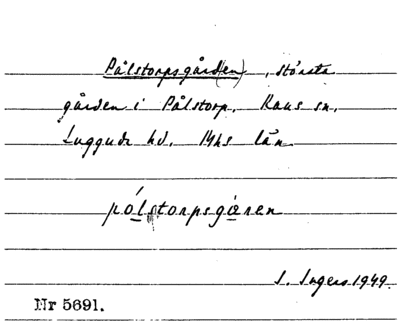 Pålstorpsgård(en), största
gården i Pålstorp. Kaus sn.
Luggude hd. Mhs län
pólstorpsgæren
I. Ingers 1949.
Nr 5691.